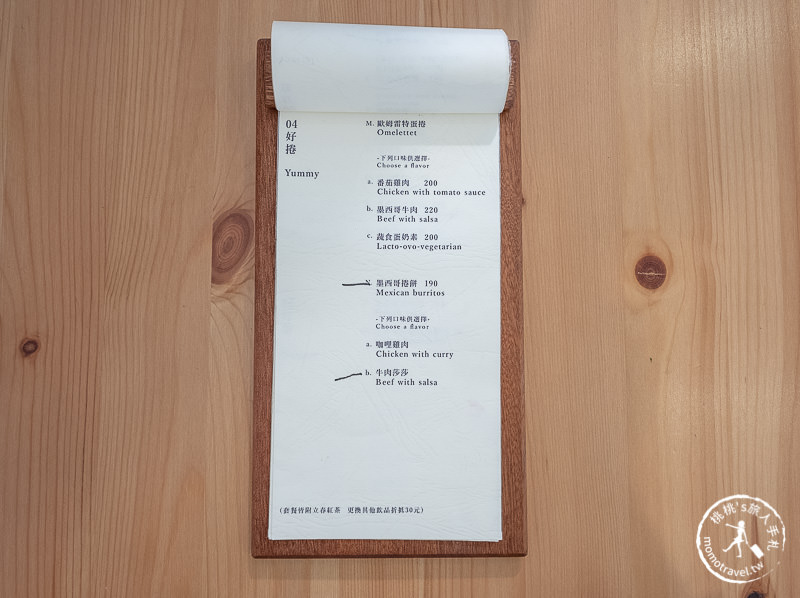 04
好
捲
Yummy
M. 歐姆雷特蛋捲
Omelettet
-下列口味供選擇-
Choose a flavor
a. 番茄雞肉 200
Chicken with tomato sauce
b. 墨西哥牛肉 220
Beef with salsa
c. 蔬食蛋奶素 200
Lacto-ovo-vegetarian
N. 墨西哥捲餅 190
Mexican burritos
-下列口味供選擇-
Choose a flavor
a. 咖哩雞肉
Chicken with curry
b. 牛肉莎莎
Beef with salsa
(套餐皆附立春紅茶 更換其他飲品折抵30元)
桃桃's旅人手札
momotravel.tw